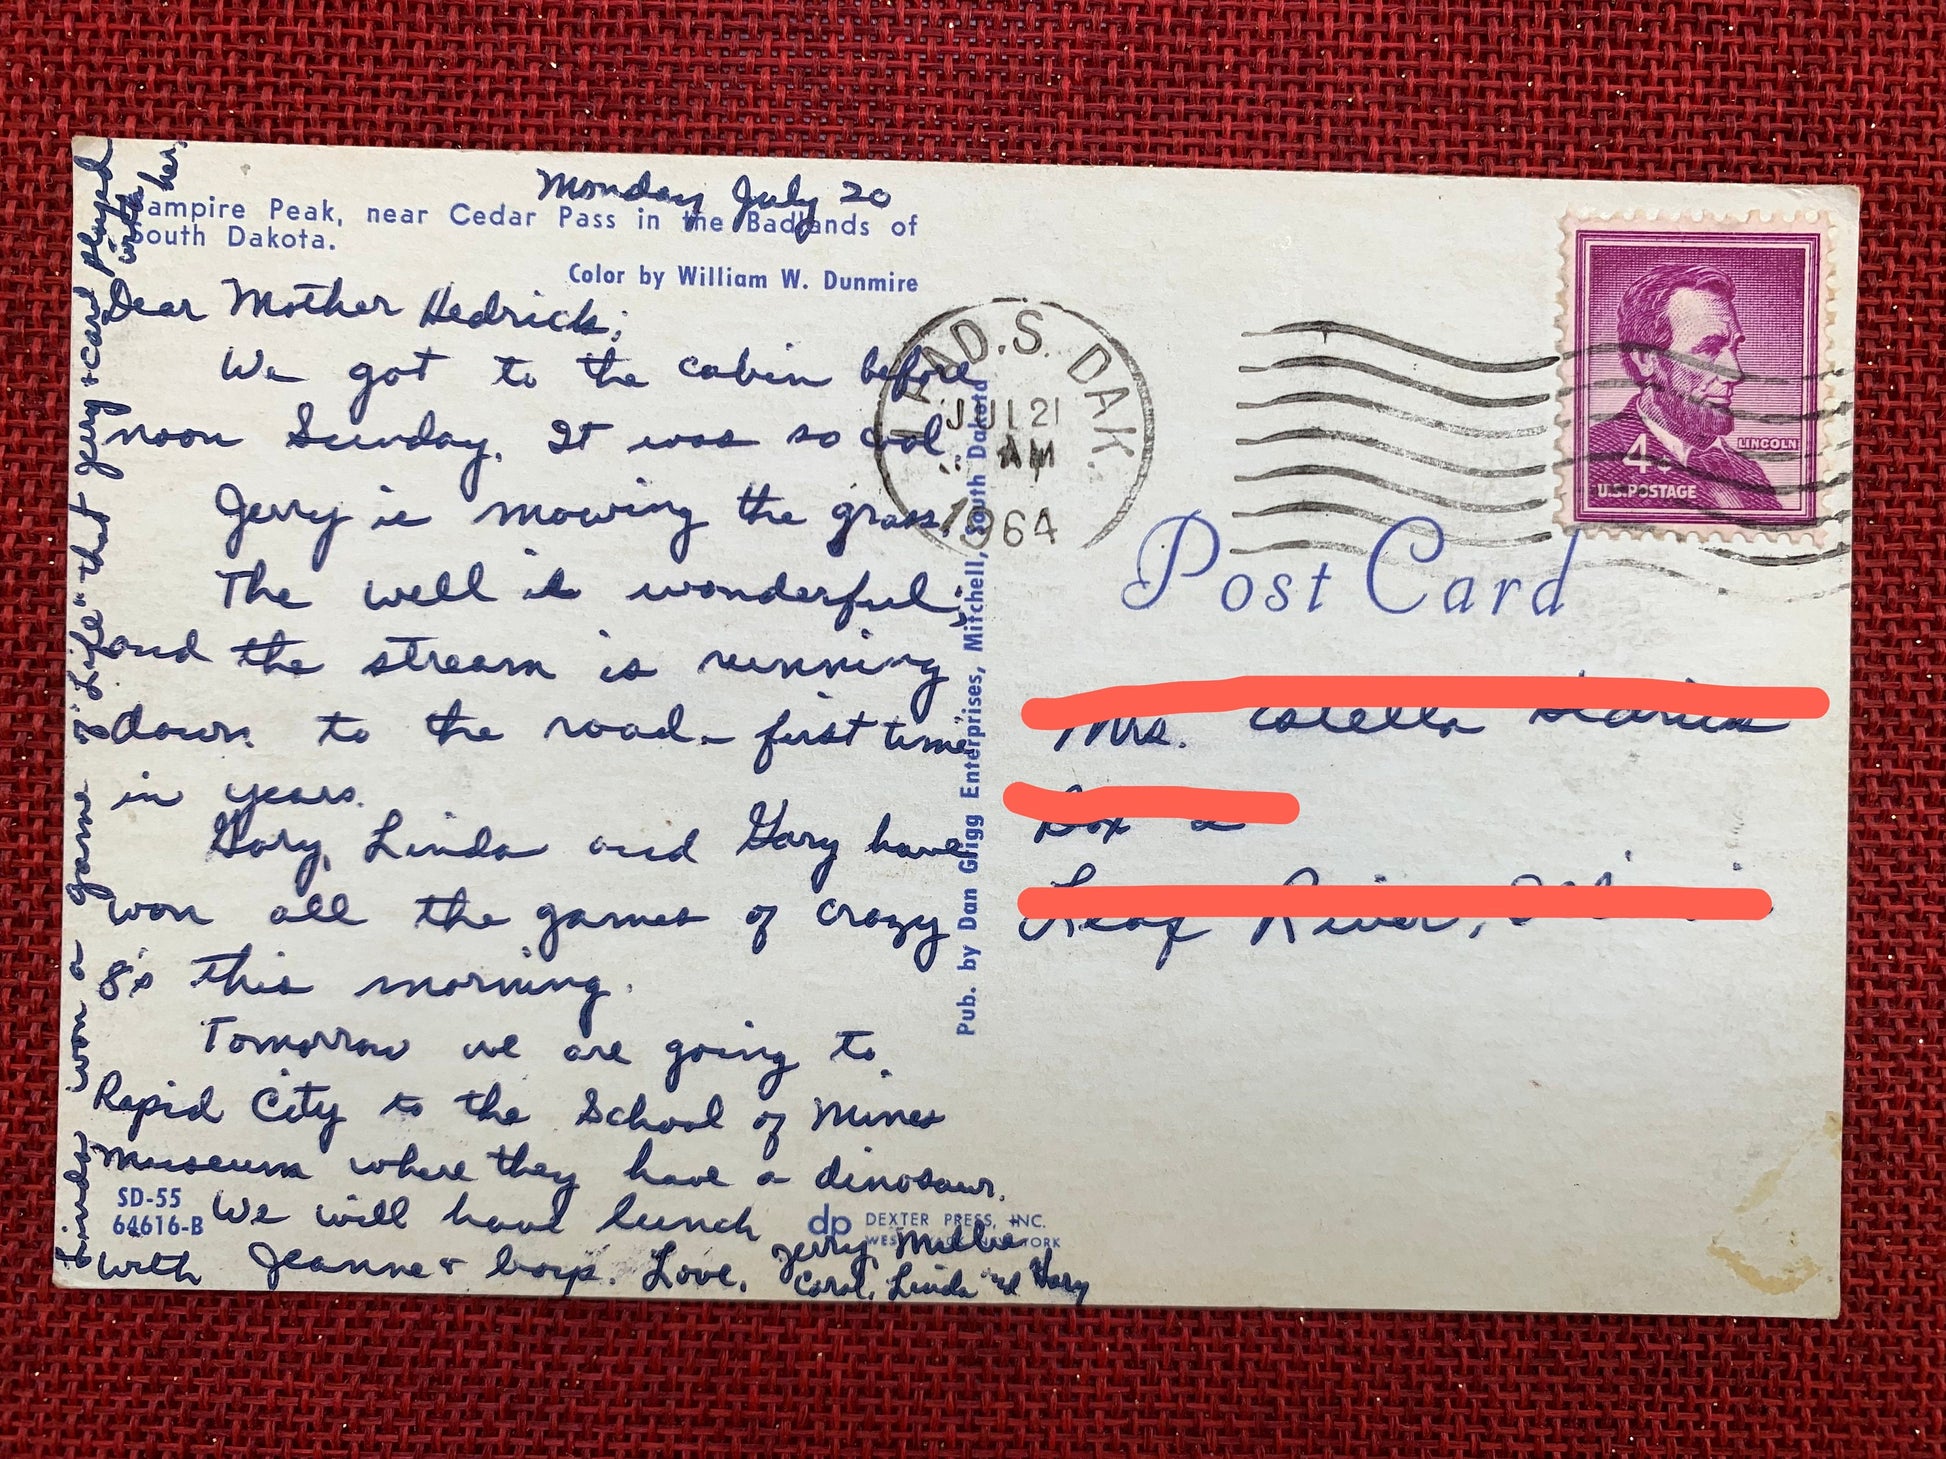 Monday July 20
Vampire Peak, near Cedar Pass in the Badlands of
South Dakota.
Color by William W. Dunmire
Dear Mother Hedrick;
We got to the cabin before
noon Sunday. It was so cool.
Jerry is mowing the grass.
The well is wonderful;
and the stream is running
down to the road - first time
in years.
Gary, Linda and Gary have
won all the games of crazy
8's this morning.
Tomorrow we are going to
Rapid City to the School of Mines
Museum where they have a dinosaur.
We will have lunch
with Jeanne + boys. Love, Jerry, Millie
Carol, Linda and Gary
Linda won a game of "Life" that Jerry + Carol played
with her.
SD-55
64616-B
dp DEXTER PRESS, INC.
WEST NYACK, NEW YORK
Pub. by Dan Grigg Enterprises, Mitchell, South Dakota
EAD. S. DAK.
JUL 21
AM
1964
LINCOLN
4¢
U.S. POSTAGE
Post Card
Mrs. Estella
Box
Leaf River,